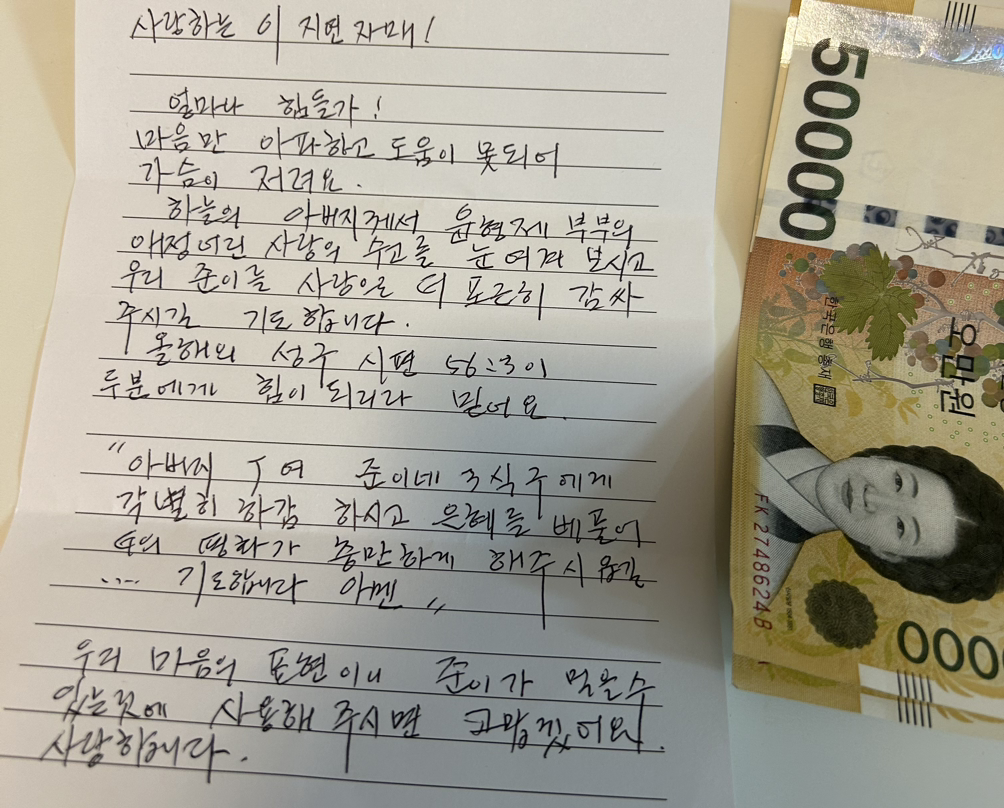 사랑하는 이 지연 자매!
얼마나 힘들가!
마음만 아파하고 도움이 못되어
가슴이 저려요.
하늘의 아버지께서 윤형제 부부의
애정어린 사랑의 수고를 눈여겨 보시고
우리 준이를 사랑으로 더 포근히 감싸
주시길 기도합니다.
올해의 성구 시편 56:3이
두분에게 힘이 되리라 믿어요.
"아버지 주여 준이네 3식구에게
각별히 하감 하시고 은혜를 베풀어
주의 평화가 충만하게 해주시옵길
.... 기도합니다 아멘"
우리 마음의 표현이니 준이가 먹을수
있는것에 사용해 주시면 고맙겠어요.
사랑합니다.
50000
한국은행 총재
오만원
FK 2748624 B
000